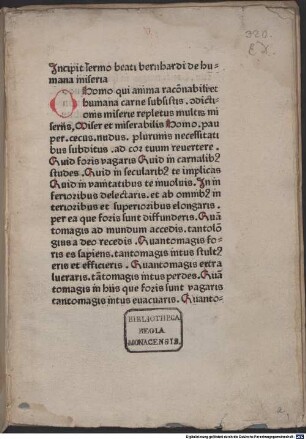 320.
Incipit sermo beati bernhardi de hu-
mana miseria
O Homo qui anima racōnabili et
humana carne subsistis. ɔdicti-
onis miserie repletus multis mi
serijs, Miser et miserabilis Homo, pau
per. cecus. nudus. plurimis necessitati
bus subditus. ad cor tuum reuertere.
Quid foris vagaris Quid in carnalib⁹
studes. Quid in secularib⁹ te implicas
Quid in vanitatibus te inuoluis. In in
ferioribus delectaris. et ab omnib⁹ in
terioribus et superioribus elongaris.
per ea que foris sunt diffunderis. Quā
tomagis ad mundum accedis. tantolō
gius a deo recedis. Quantomagis fo-
ris es sapiens. tantomagis intus stult⁹
eris et efficieris. Quantomagis extra
lucraris. tātomagis intus perdes. Quā
tomagis in hijs que foris sunt vagaris
tantomagis intus euacuaris. Quanto-
BIBLIOTHECA
REGIA
MONACENSIS.